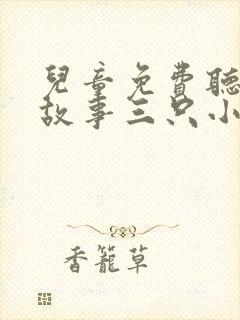 兒童免費聽
故事三只小
香籠草